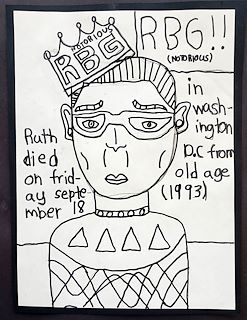 NOTORIOUS
RBG
RBG!!
(NOTORIOUS)
in
wash-
ington
D.C from
old age
(1993)
Ruth
died
on frid-
ay septe
mber 18